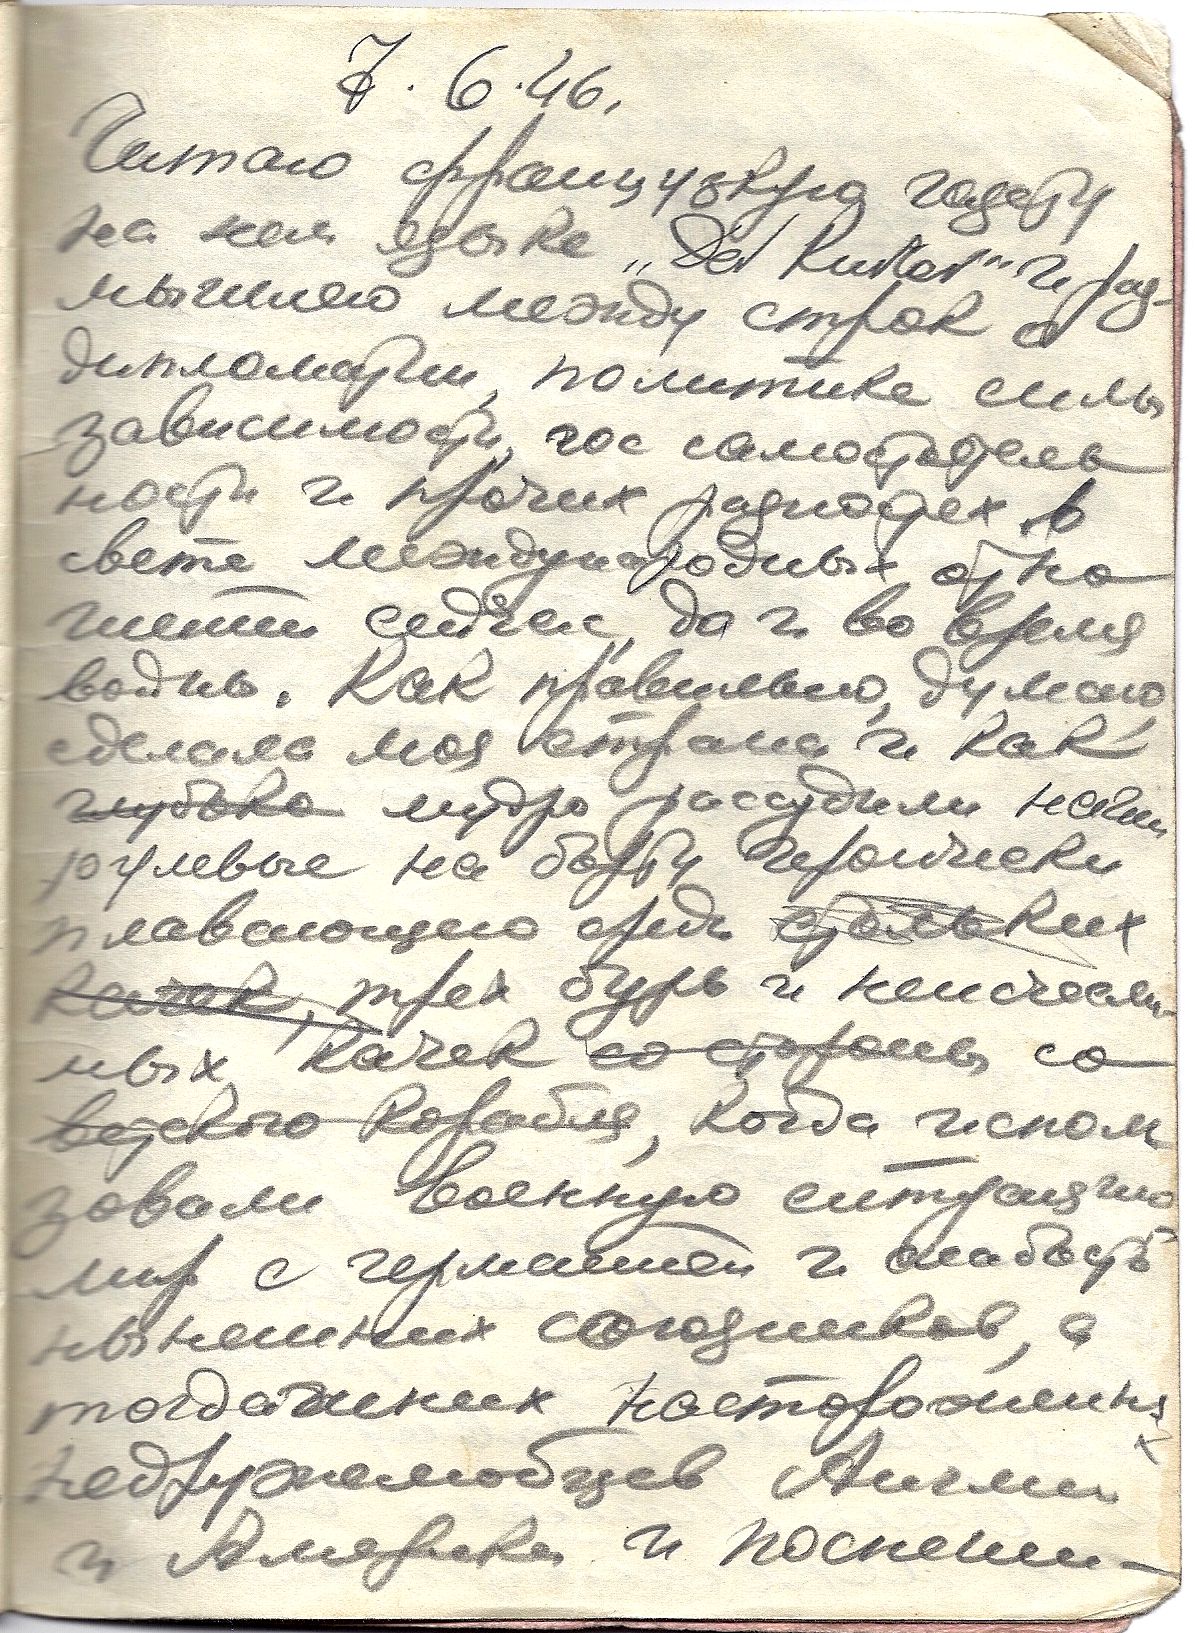 7.6.46.
Читаю французкую газету
на нем языке „Der Kurier“ и раз-
мышляю между строк о
дипломатии, политике силы
зависимости, гос самостоятель
ности и прочих разностях в
свете международных отно
шений сейчас, да и во время
войны. Как правильно, думаю,
сделала моя страна и как
глубоко мудро рассудили наши
рулевые на борту героически
плавающего средь стольких
качек, трех бурь и неисчисли-
мых качек со стороны со
ветского корабля, когда исполь
зовали военную ситуацию
мир с германией и слабость
нынешних союзников, а
тогдашних настороженных
недружелюбцев Англии
и Америки и поспеши-